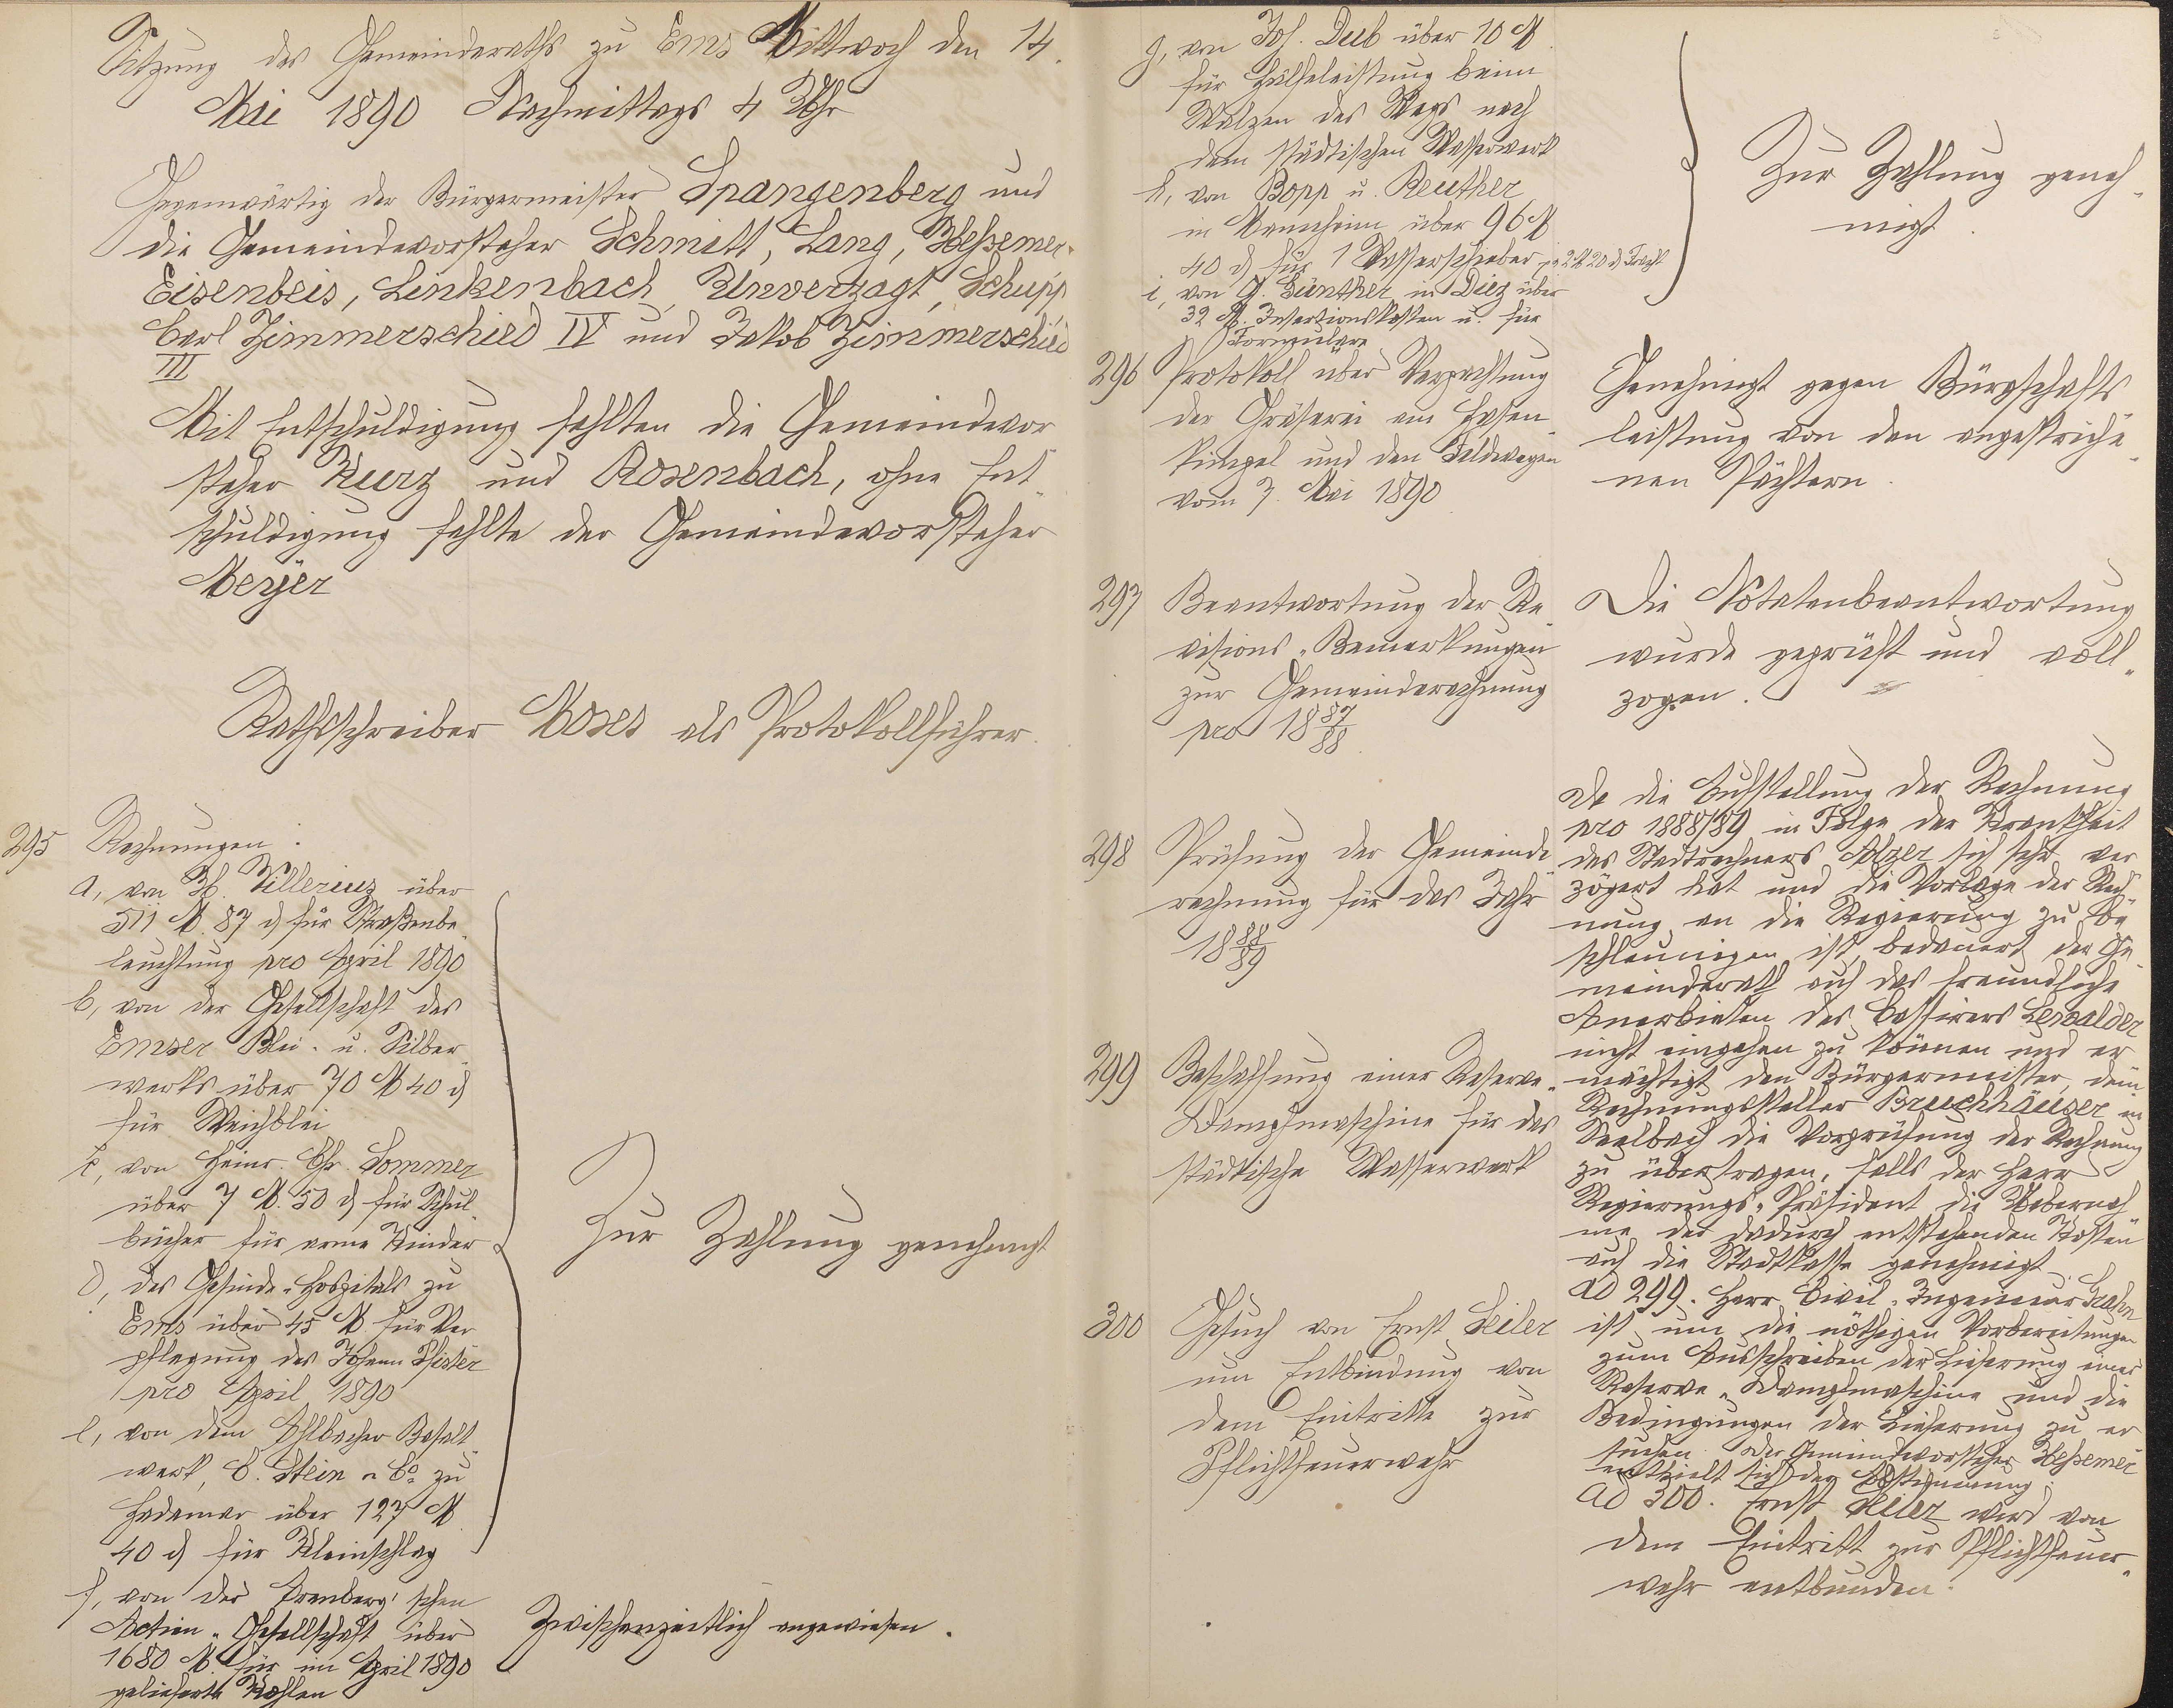 Sitzung des Gemeinderaths zu Ems Mittwoch den 14.
Mai 1890 Nachmittags 4 Uhr
Gegenwärtig der Bürgermeister Spangenberg und
die Gemeindevorsteher Schmitt, Lang, Heßemer,
Eisenbeis, Linkenbach, Unverzagt, Schupp,
Carl Zimmerschied IV und Jakob Zimmerschied
III
Mit Entschuldigung fehlten die Gemeindevor
steher Kurz und Rosenbach, ohne Ent
schuldigung fehlte der Gemeindevorsteher
Meyer
Rathsschreiber Moses als Protokollführer.
295 Rechnungen:
a, von H. Villerius über
511 M. 87 d für Straßenbe
leuchtung pro April 1890
b, von der Gesellschaft des
Emser Blei- u. Silber
werks über 70 M 40 d
für Weichblei
c, von Heinr. Chr. Sommer
über 7 M. 50 d für Schul
bücher für arme Kinder
d, des Gesinde-Hospitals zu
Ems über 45 M. für Ver
pflegung des Johann Pfister
pro April 1890
Zur Zahlung genehmigt
e, von dem Ahlbacher Basalt
werk, C. Stein & Co zu
Hadamar über 127 M
40 d für Kleinschlag
f, von der Arenberg'schen
Actien-Gesellschaft über
1680 M. für im April 1890
gelieferte Kohlen
Zwischenzeitlich angewiesen.
g, von Joh. Dub über 10 M
für Hülfeleistung beim
Walzen des Wegs nach
dem städtischen Wasserwerk
h, von Bopp u. Reuther
in Mannheim über 96 M
40 d für 1 Wasserschieber 2 M 20 d Fracht
i, von G. Günther in Diez über
32 M. Insertionskosten u. für
Formulare
Zur Zahlung geneh-
migt.
296 Protokoll über Verpachtung
der Gräserei am Hasen
kümpel und den Feldwegen
vom 7. Mai 1890
Genehmigt gegen Bürgschafts
leistung von den angestriche
nen Pächtern.
297 Beantwortung der Re-
visions-Bemerkungen
zur Gemeinderechnung
pro 18 87/88.
Die Notatenbeantwortung
wurde geprüft und voll-
zogen.
298 Prüfung der Gemeinde
rechnung für das Jahr
18 88/89
Da die Aufstellung der Rechnung
pro 1888/89 in Folge der Krankheit
des Stadtrechners sich sehr ver
zögert hat und die Vorlage der Rech
nung an die Regierung zu be
schleunigen ist, bedauert der Ge
meinderath auf das freundliche
Anerbieten des Cassirers Lewalder
nicht eingehen zu können und er
mächtigt den Bürgermeister, dem
Rechnungssteller Bruchhäuser in
Seelbach die Vorprüfung der Rechnung
zu übertragen, falls der Herr
Regierungs-Präsident die Uebernah
me der dadurch entstehenden Kosten
auf die Stadtkasse genehmigt.
299 Beschaffung einer Reserve-
Dampfmaschine für das
städtische Wasserwerk
ad 299. Herr Civil-Ingenieur
ist um die nöthigen Vorbereitungen
zum Ausschreiben der Lieferung einer
Reserve-Dampfmaschine und die
Bedingungen der Lieferung zu er
suchen. Der Gemeindevorsteher Heßemer
enthielt sich der Abstimmung.
300 Gesuch von Ernst Seiler
um Entbindung von
dem Eintritte zur
Pflichtfeuerwehr
ad 300. Ernst Seiler wird von
dem Eintritt zur Pflichtfeuer-
wehr entbunden.